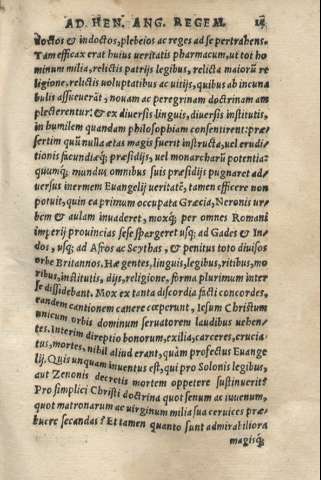 AD HEN. ANG. REGEM.
doctos & indoctos, plebeios ac reges ad se pertrahens.
Tam efficax erat huius veritatis pharmacum, ut tot ho
minum milia, relictis patrijs legibus, relicta maiorũ re
ligione, relictis voluptatibus ac uitijs, quibus ab incuna
bulis assueuerãt, nouam ac peregrinam doctrinam am
plecterentur: & ex diversis linguis, diversis institutis,
in humilem quandam philosophiam consentirent: præ
sertim quũ nulla ætas magis fuerit instructa, uel erudi
tionis facundiæq; præsidijs, uel monarcharũ potentia:
quumq; mundus omnibus suis præsidijs pugnaret ad
versus inermem Euangelij ueritatẽ, tamen efficere non
potuit, quin ea primum occupata Græcia, Neronis ur
bem & aulam inuaderet, moxq; per omnes Romani
imperij prouincias sese spargeret usq; ad Gades & In
dos, usq; ad Afros ac Scythas, & penitus toto diuisos
orbe Britannos. Hæ gentes, linguis, legibus, ritibus, mo
ribus, institutis, dijs, religione, forma plurimum inter
se dissidebant. Mox ex tanta discordia facti concordes,
eandem cantionem canere cœperunt, Iesum Christum
unicum orbis dominum seruatorem laudibus uehen
tes. Interim direptio bonorum, exilia, carceres, crucia
tus, mortes, nihil aliud erant, quàm profectus Euange
lij. Quis unquam inuentus est, qui pro Solonis legibus,
aut Zenonis decretis mortem oppetere sustinuerit?
Pro simplici Christi doctrina quot senum ac iuuenum,
quot matronarum ac uirginum milia sua ceruices præ
buere secandas? Et tamen quanto sunt admirabiliora
magisq;